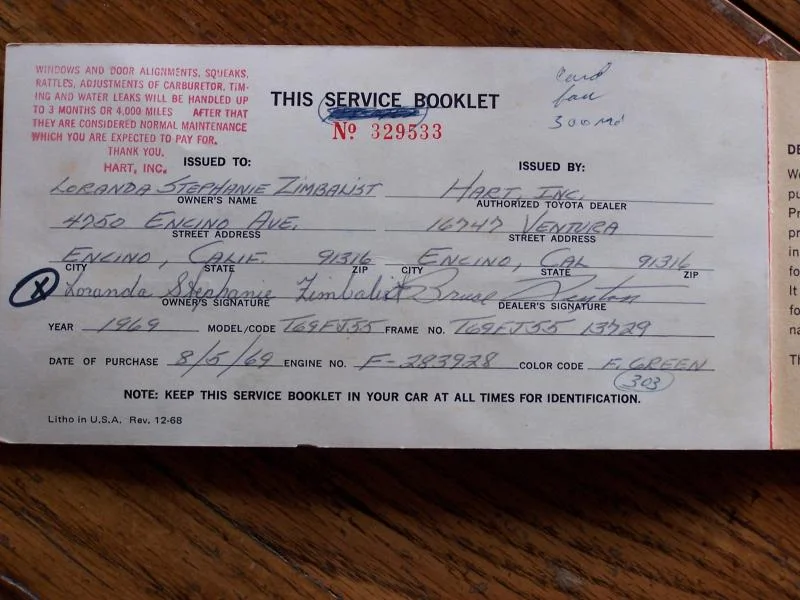 WINDOWS AND DOOR ALIGNMENTS, SQUEAKS,
RATTLES, ADJUSTMENTS OF CARBURETOR, TIM-
ING AND WATER LEAKS WILL BE HANDLED UP
TO 3 MONTHS OR 4,000 MILES AFTER THAT
THEY ARE CONSIDERED NORMAL MAINTENANCE
WHICH YOU ARE EXPECTED TO PAY FOR.
THANK YOU.
HART, INC.
THIS SERVICE BOOKLET
No 329533
Card
300 Mi
ISSUED TO:
LORANDA STEPHANIE ZIMBALIST
OWNER'S NAME
4750 ENCINO AVE.
STREET ADDRESS
ENCINO, CALIF. 91316
CITY STATE ZIP
Loranda Stephanie Zimbalist
OWNER'S SIGNATURE
ISSUED BY:
HART, INC.
AUTHORIZED TOYOTA DEALER
16747 VENTURA
STREET ADDRESS
ENCINO, CAL 91316
CITY STATE ZIP
Bruce
DEALER'S SIGNATURE
YEAR 1969 MODEL/CODE T69FJ55 FRAME NO. T69FJ55 13729
DATE OF PURCHASE 8/5/69 ENGINE NO. F-283928 COLOR CODE F. GREEN
303
NOTE: KEEP THIS SERVICE BOOKLET IN YOUR CAR AT ALL TIMES FOR IDENTIFICATION.
Litho in U.S.A. Rev. 12-68